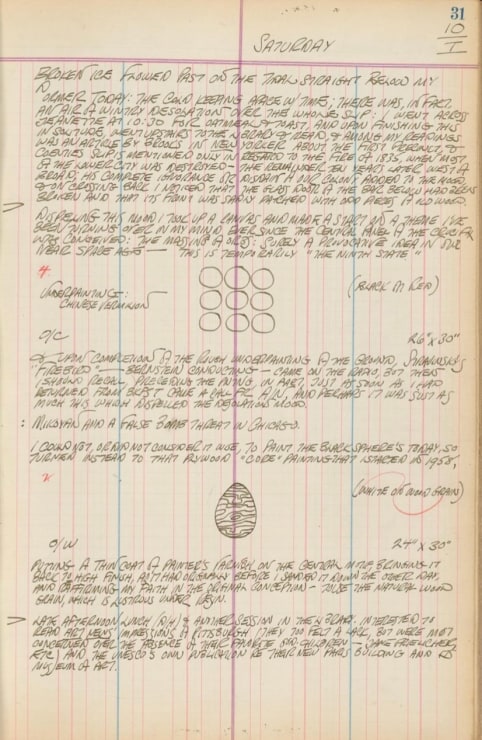 31
10
I
SATURDAY
BROKEN ICE FLOWED PAST ON THE TIDAL STRAIGHT BELOW MY
DORMER TODAY: THE COLD KEEPING APACE W/ TIME; THERE WAS, IN FACT,
AN AIR OF WINTRY DESOLATION OVER THE WHOLE SLIP: I WENT ACROSS
TO JEANETTE AT 10:30 FOR OATMEAL & TOAST, AND UPON FINISHING THIS
IN SOLITUDE, WENT UPSTAIRS TO THE LIBRARY & READ, & AMONG MY READINGS
WAS AN ARTICLE BY BROOKS IN NEW YORKER ABOUT THE FIRST PRECINCT, &
COENTIES SLIP IS MENTIONED ONLY IN REGARD TO THE FIRE OF 1835, WHEN MOST
OF THE LOWER CITY WAS DESTROYED & THE REMAINDER TEN YEARS LATER WEST OF
BROAD; HIS COMPLETE
& ON CROSSING BACK I NOTICED THAT THE GLASS DOOR OF THE BAR BELOW HAD BEEN
BROKEN AND THAT ITS FRONT WAS SADLY PATCHED WITH ODD PIECES OF OLD WOOD.
DISPELLING THIS MOOD I TOOK UP A CANVAS AND MADE A START ON A THEME I'VE
BEEN TURNING OVER IN MY MIND EVER SINCE THE CENTRAL PANEL OF THE CRUCIFIX
WAS CONCEIVED: THE MASSING OF ORBS: SURELY A PROVOCATIVE IDEA IN OUR
NEAR SPACE AGE — THIS IS TEMPORARILY "THE NINTH STATE"
(BLACK IN RED)
UNDERPAINTING:
CHINESE VERMILION
O/C
26" x 30"
UPON COMPLETION OF THE ROUGH UNDERPAINTING OF THE GROUND, STRAVINSKY'S
"FIREBIRD" — BERNSTEIN CONDUCTING — CAME ON THE RADIO, BUT THEN
I SHOULD RECALL, PRECEEDING THE PTNG, IN PART, JUST AS SOON AS I HAD
RETURNED FROM BKFST CAME A CALL FR. AND PERHAPS IT WAS JUST AS
MUCH THIS WHICH DISPELLED THE DESOLATIONS MOOD.
: MIKOYAN AND A FALSE BOMB THREAT IN CHICAGO.
I COULD NOT, OR DID NOT CONSIDER IT WISE, TO PAINT THE BLACK SPHERES TODAY, SO
TURNED INSTEAD TO THAT PLYWOOD "CORE" PAINTING THAT I STARTED IN 1958,
(WHITE ON WOOD GRAIN)
O/W
24" x 30"
PUTTING A THIN COAT OF PAINTER'S VARNISH ON THE CENTRAL MOTIF, BRINGING IT
BACK TO HIGH FINISH, AS IT HAD ORIGINALLY BEFORE I SANDED IT DOWN THE OTHER DAY,
AND REAFFIRMING MY FAITH IN THE ORIGINAL CONCEPTION — TO USE THE NATURAL WOOD
GRAIN, WHICH IS LUSTROUS UNDER RESIN.
LATE AFTERNOON LUNCH & ANOTHER SESSION IN THE LIBRARY. INTERESTED TO
READ ART NEWS' IMPRESSIONS OF PITTSBURGH (THEY TOO FELT A LACK, BUT WERE MOST
CONCERNED OVER THE ABSENCE OF THEIR FAVORITE CHILDREN — JANE FREILICHER,
ETC) AND THE UNESCO'S OWN PUBLICATION RE THEIR NEW PARIS BUILDING AND ITS
MUSEUM OF ART.